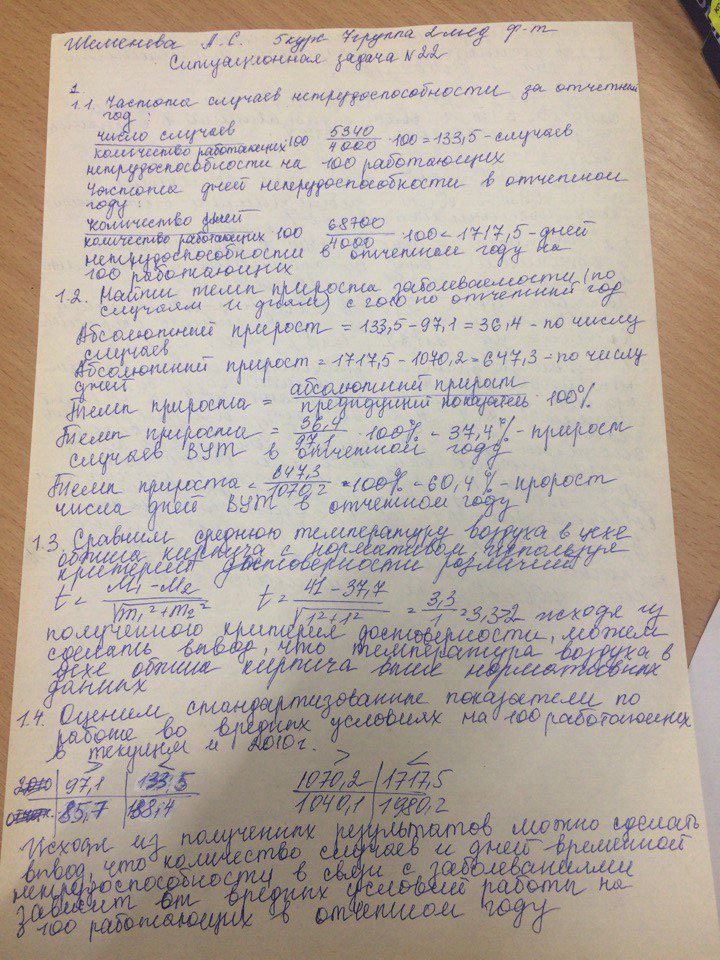 Шеменева А.С. 5 курс 7 группа 2 мед ф-т
Ситуационная задача №22
1
1.1. Частота случаев нетрудоспособности за отчетный
год:
число случаев / количество работающих · 100   5340 / 4000 · 100 = 133,5 - случаев
нетрудоспособности на 100 работающих
Частота дней нетрудоспособности в отчетном
году:
количество дней / количество работающих · 100   68700 / 4000 · 100 = 1717,5 - дней
нетрудоспособности в отчетном году на
100 работающих
1.2. Найти темп прироста заболеваемости (по
случаям и дням) с 2010 по отчетный год
Абсолютный прирост = 133,5 - 97,1 = 36,4 - по числу
случаев
Абсолютный прирост = 1717,5 - 1070,2 = 647,3 - по числу
дней
Темп прироста = абсолютный прирост / предидущий показатель · 100%
Темп прироста = 36,4 / 97,1 · 100% = 37,4% - прирост
случаев ВУТ в отчетном году
Темп прироста = 647,3 / 1070,2 · 100% = 60,4% - пророст
числа дней ВУТ в отчетном году
1.3. Сравним среднюю температуру воздуха в цехе
обжига кирпича с нормативом, используя
критерий достоверности различий
t = M1 - M2 / √m1² + m2²   t = 41 - 37,7 / √1² + 1² = 3,3 / 1 = 3,3 > 2 исходя из
полученного критерия достоверности, можем
сделать вывод, что температура воздуха в
цехе обжига кирпича выше нормативных
данных
1.4. Оценим стандартизованные показатели по
работе во вредных условиях на 100 работающих
в текущем и 2010г.
> < > <
2010 97,1 133,5 1070,2 1717,5
отчет. 85,7 188,4 1040,1 1980,2
Исходя из полученных результатов можно сделать
вывод, что количество случаев и дней временной
нетрудоспособности в связи с заболеваниями
зависит от вредных условий работы на
100 работающих в отчетном году